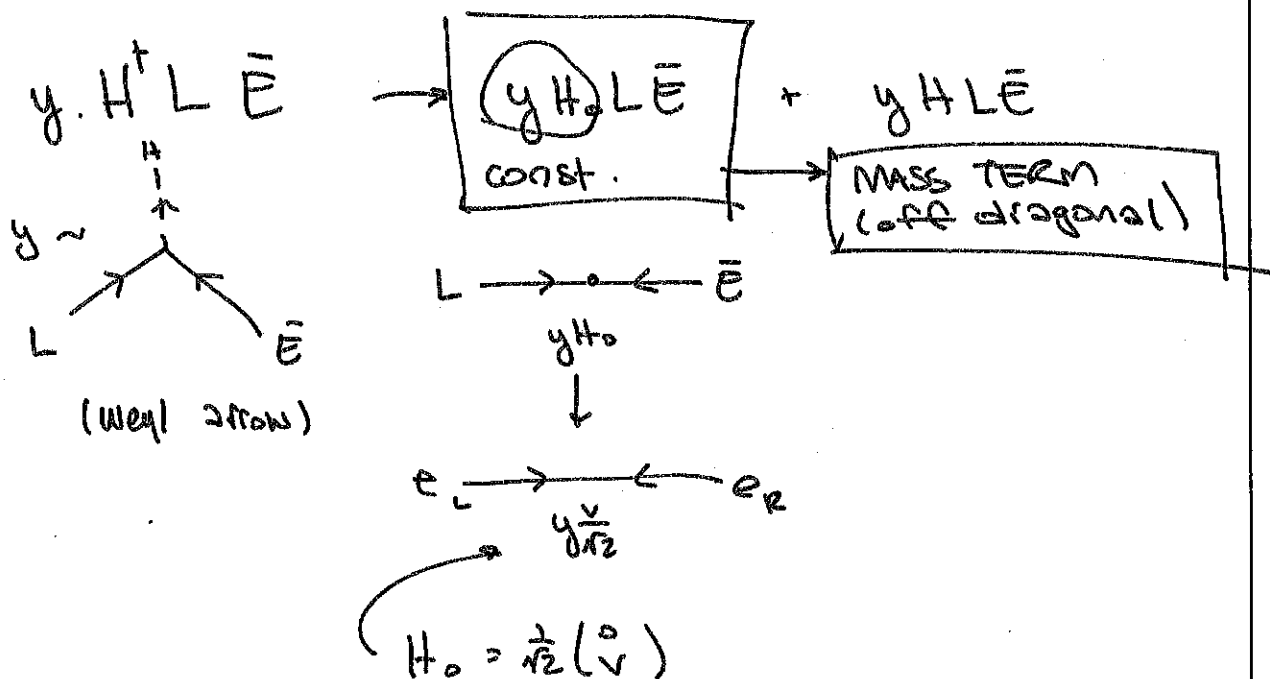 y. H† L Ē → yH₀LĒ + yHLĒ
const.
MASS TERM
(off diagonal)
H
y ~
L Ē
(Weyl arrow)
L Ē
yH₀
e_L e_R
y v/√2
H₀ = 1/√2 (0 v)